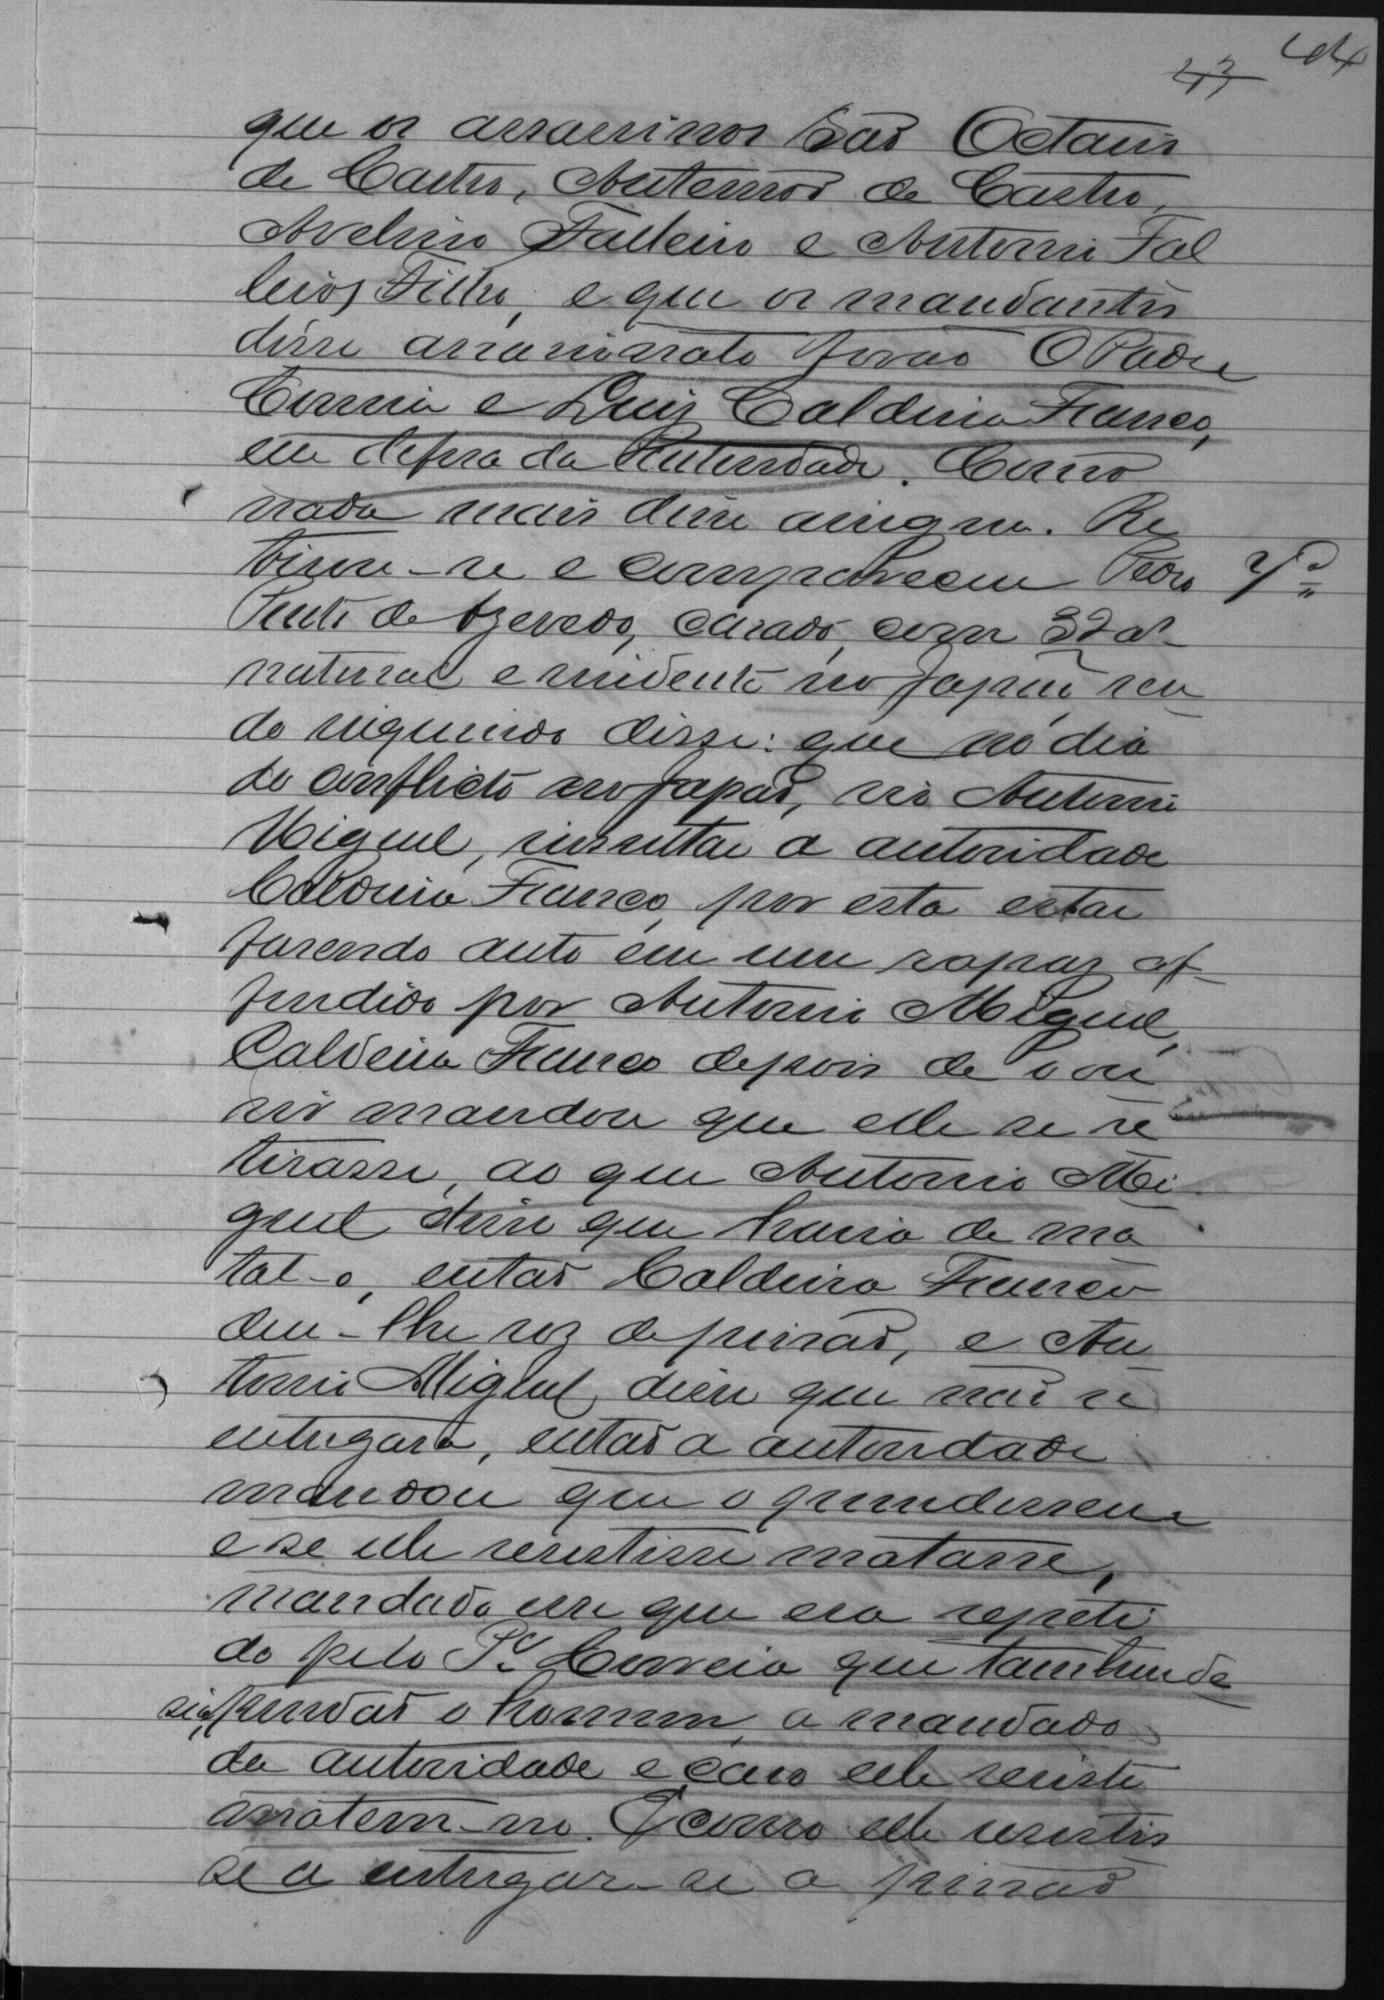 43 44
que os assassinos são Octavio
de Castro, Antenor de Castro,
Avelino Falleiro e Antonio Fal
leiros Filho, e que os mandantes
disse assassinato forão O Padre
Correia e Luiz Caldeira Franco,
em defesa da Autoridade. Como
nada mais disse assigna. Re
tirou-se e compareceu Pedro 7ª
de Azevedo, casado, com 32 aº
natural e residente no Japão, sen
do inquerido disse: que no dia
do conflicto no Japão, vio Antonio
Miguel, insultar a autoridade
Caldeira Franco, por esta estar
fasendo auto em um rapaz of
fendido por Antonio Miguel,
Caldeira Franco depois de o ou
vir mandou que elle se re
tirasse, ao que Antonio Mi
guel disse que havia de ma
tal-o, então Caldeira Franco
deu-lhe voz de prisão, e An
tonio Miguel disse que não se
entregava, então a autoridade
mandou que o prendessem
e se elle resistisse matasse,
mandado esse que era repeti
do pelo Pe. Correia que tambem de
sia, prendão o homem, a mandado
da autoridade e caso elle resiste
matem-no. E como elle resistis
se a entregar-se a prisão